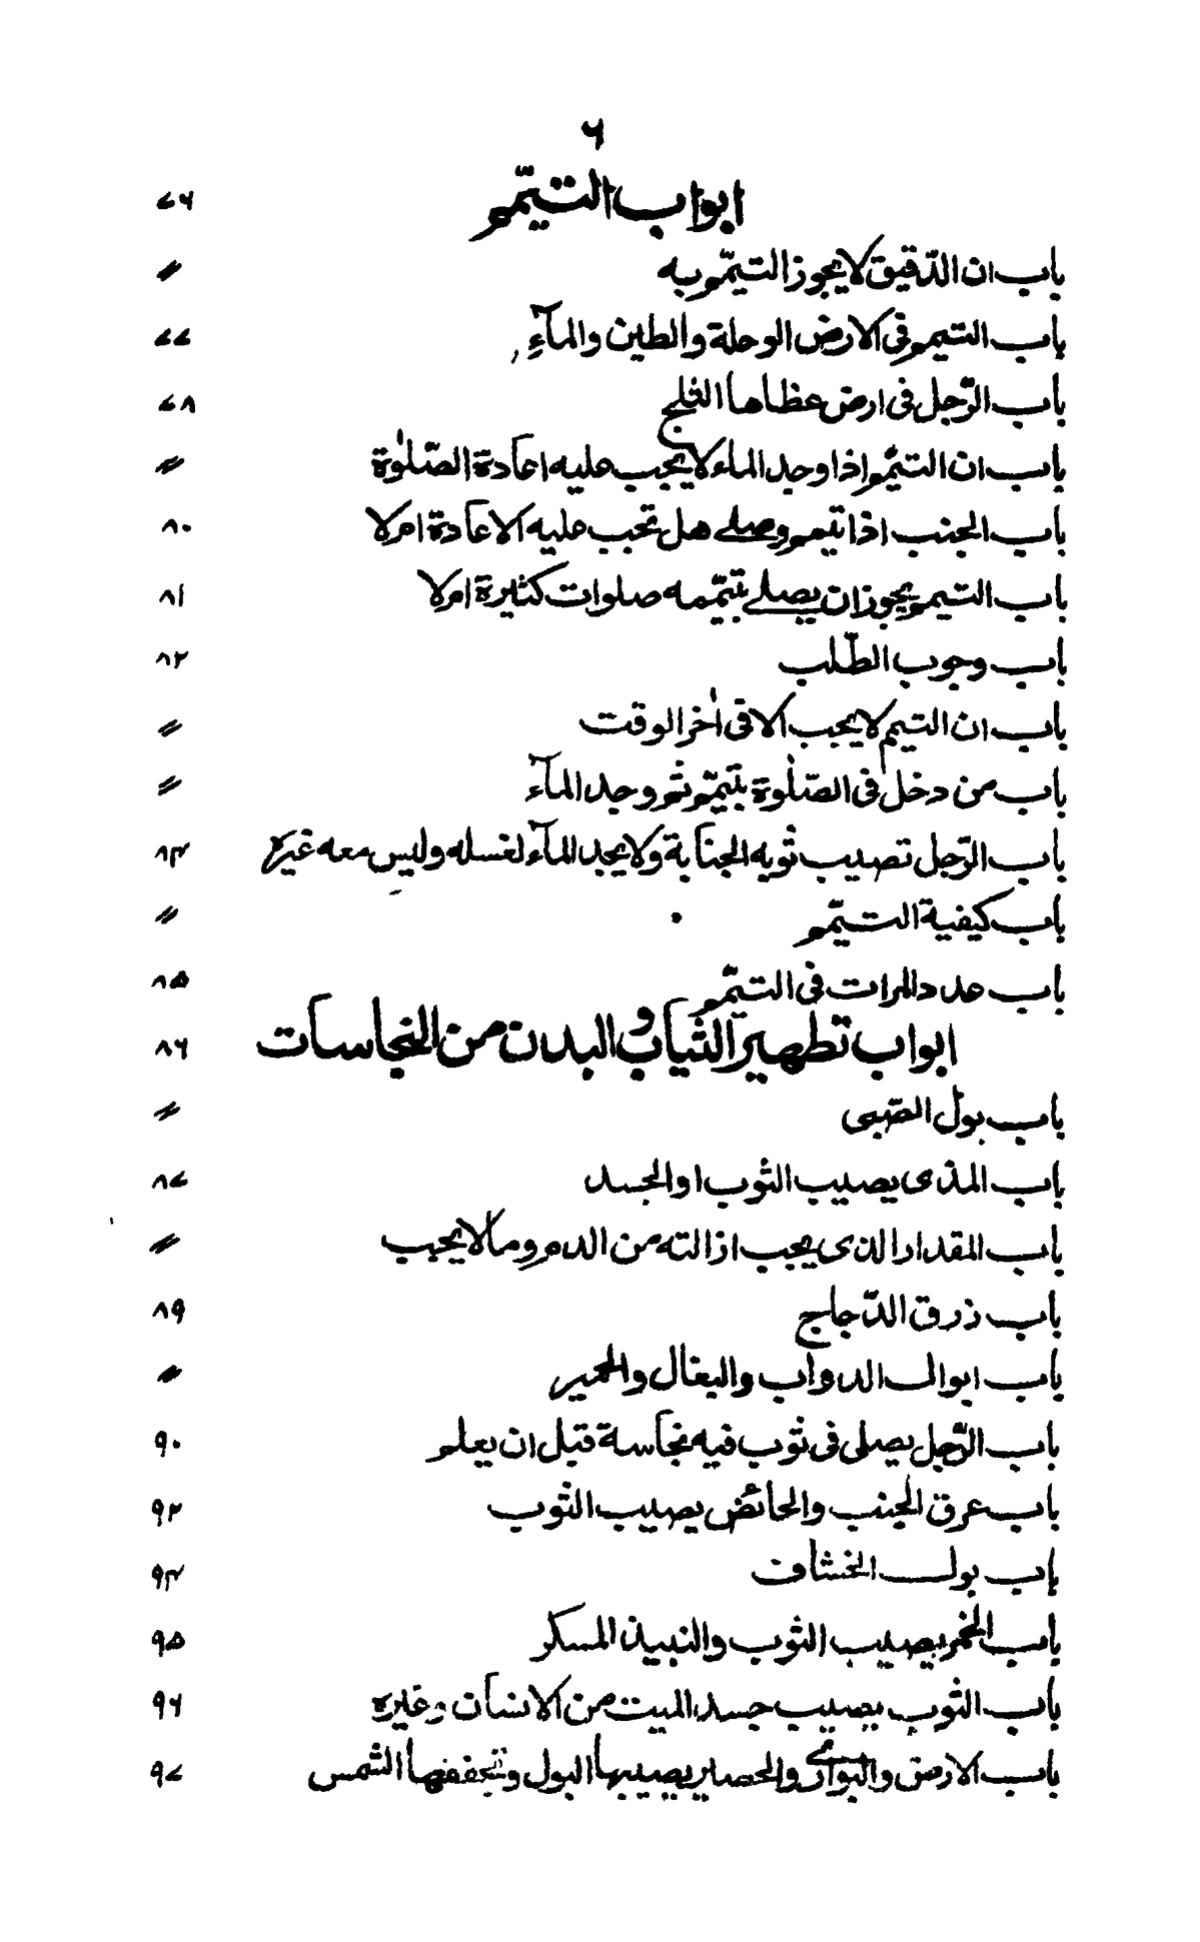 ۶
ابواب التيمّم ۷۶
باب ان الدّقيق لا يجوز التيمّم به 〃
باب التيمم فى الارض الوحلة والطين والمآءِ ۷۷
باب الرّجل فى ارض عظاها الثلج ۷۸
باب ان التيمّم اذا وجد الماء لا يجب عليه اعادة الصّلٰوة 〃
باب الجنب اذا تيمم وصلے هل تجب عليه الاعادة ام لا ۸۰
باب التيمم يجوز ان يصلے بتيمّمه صلوات كثيرة ام لا ۸۱
باب وجوب الطّلب ۸۲
باب ان التيمم لا يجب الا فى اٰخر الوقت 〃
باب من دخل فى الصّلٰوة بتيمّم ثم وجد المآء 〃
باب الرّجل تصيب ثوبه الجنابة ولا يجد المآء لغسله وليس معه غيره ۸۳
باب كيفية التيمّم 〃
باب عدد المرات فى التيمّم ۸۵
ابواب تطهير الثياب و البدن من النجاسات ۸۶
باب بول الصّبى 〃
باب المذى يصيب الثوب او الجسد ۸۷
باب المقدار الذى يجب ازالته من الدم وما لا يجب 〃
باب ذرق الدّجاج ۸۹
باب ابوال الدواب والبغال والحمير 〃
باب الرّجل يصلى فى ثوب فيه نجاسة قبل ان يعلم ۹۰
باب عرق الجنب والحائض يصيب الثوب ۹۲
باب بول الخشاف ۹۴
باب الخمر يصيب الثوب والنبيذ المسكر ۹۵
باب الثوب يصيب جسد الميت من الانسان وغيره ۹۶
باب الارض والبوارى والحصير يصيبها البول وتجففها الشمس ۹۷